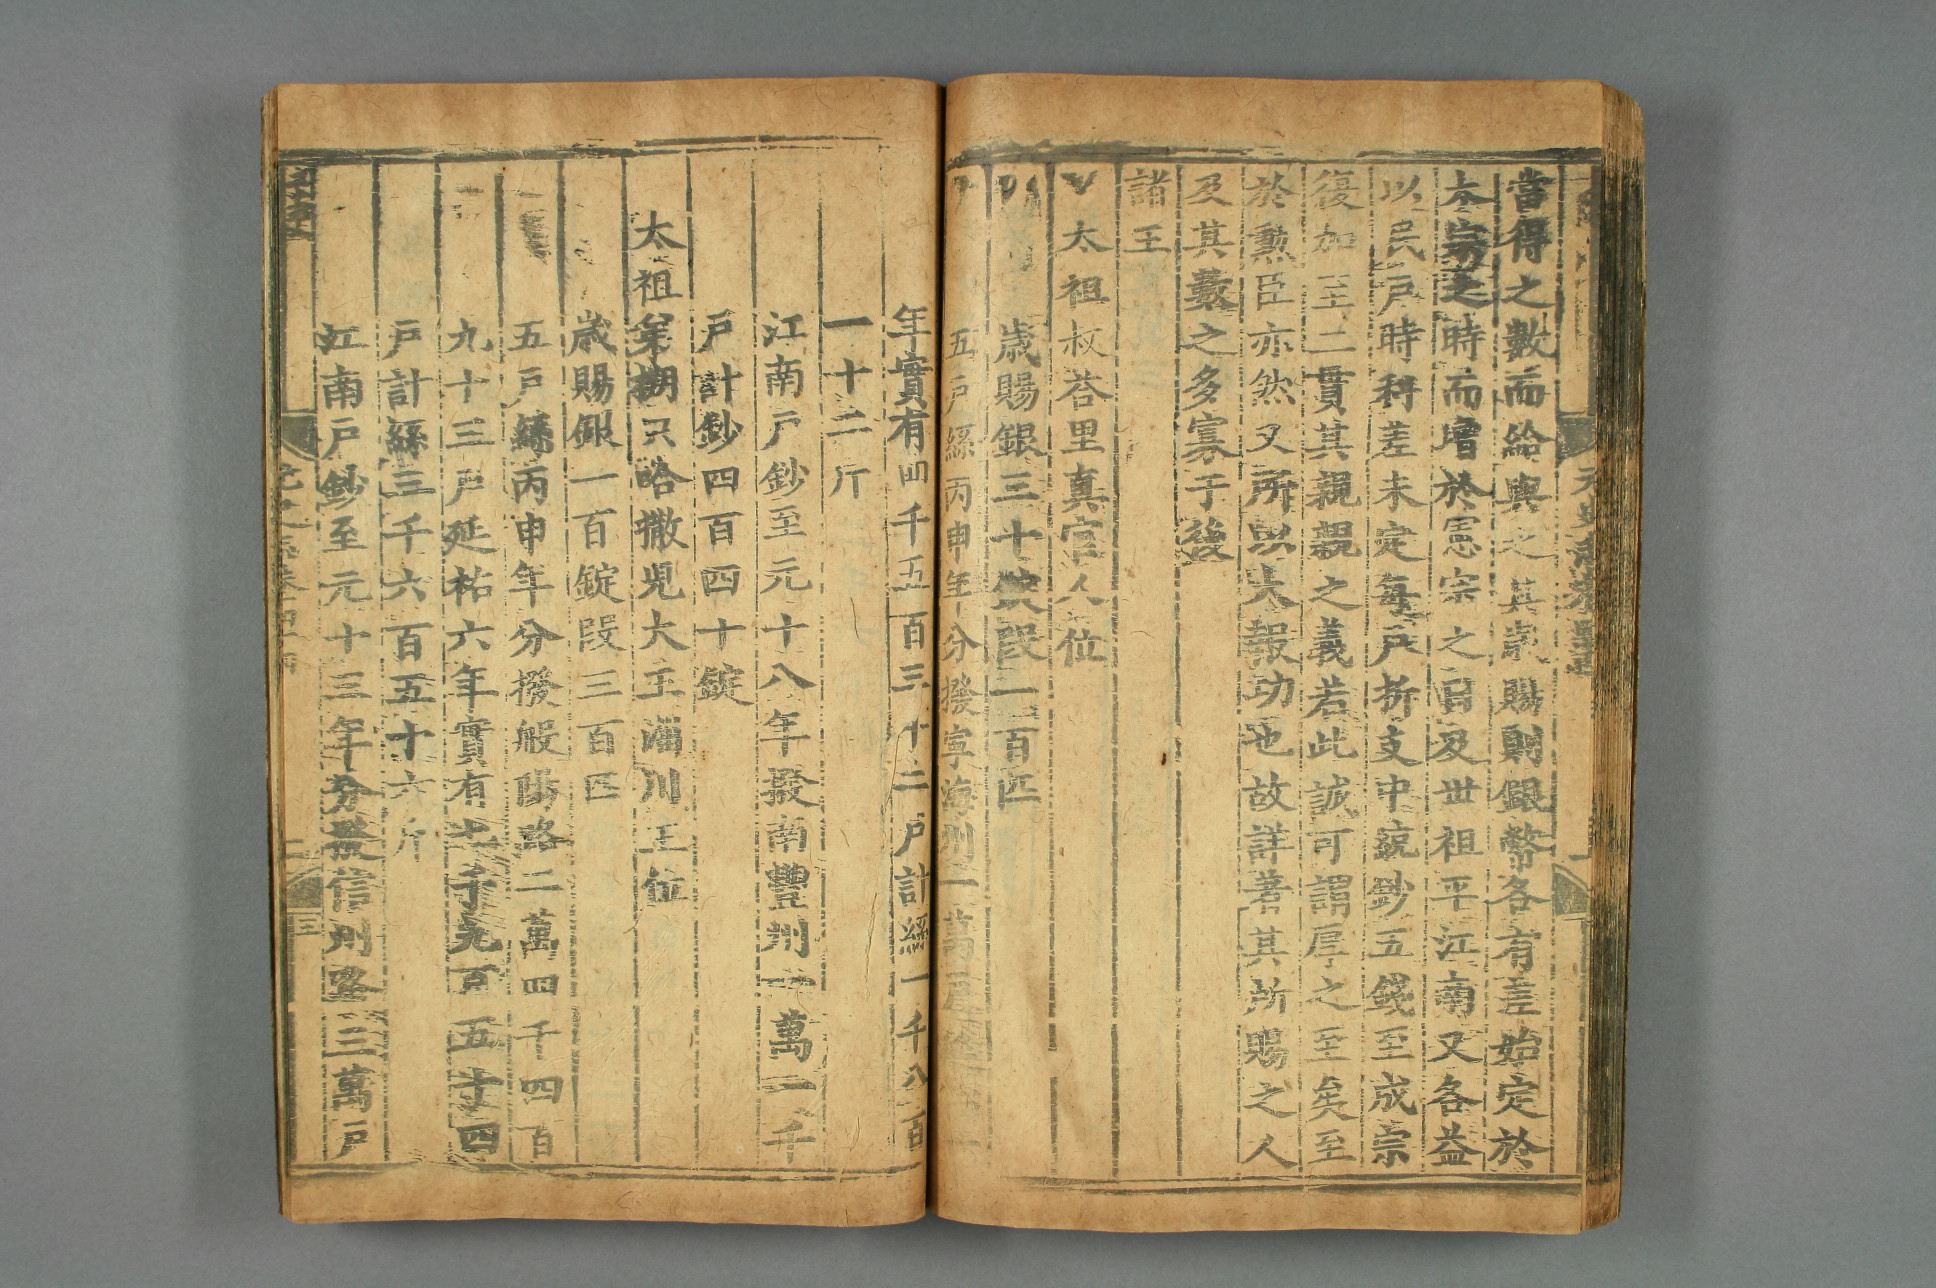 當得之數而給與之其歲賜則銀幣各有差始定於
太宗之時而增於憲宗之日及世祖平江南又各益
以民戶時科差未定每戶折支中統鈔五錢至成宗
復加至二貫其親親之義若此誠可謂厚之至矣至
於勲臣亦然又所以大報功也故詳著其所賜之人
及其數之多寡于後
諸王
太祖叔荅里真官人位
歲賜銀三十錠段一百匹
五戶絲丙申年分撥寧海州一萬戶
年實有四千五百三十二戶計絲一千八百
一十二斤
江南戶鈔至元十八年撥南豐州一萬一千
戶計鈔四百四十錠
太祖弟搠只哈撒兒大王淄川王位
歲賜銀一百錠段三百匹
五戶絲丙申年分撥般陽路二萬四千四百
九十三戶延祐六年實有七千九百五十四
戶計絲三千六百五十六斤
江南戶鈔至元十三年分撥信州路三萬戶